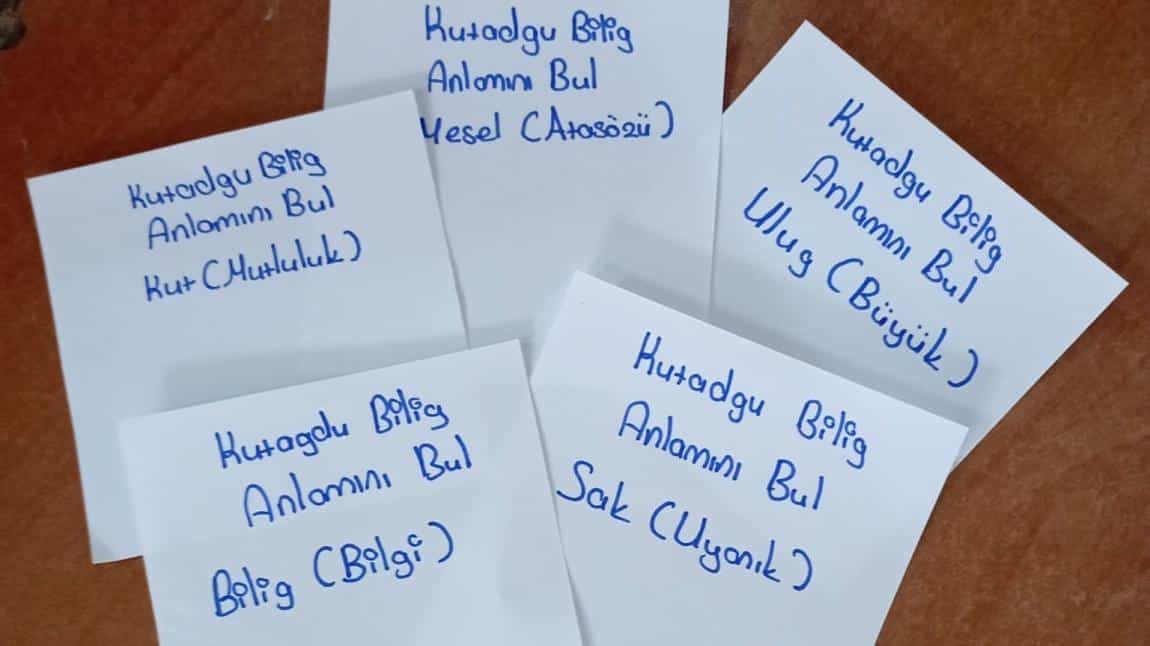 Kutadgu Bilig
Anlamını Bul
Mesel (Atasözü)
Kutadgu Bilig
Anlamını Bul
Kut (Mutluluk)
Kutadgu Bilig
Anlamını Bul
Ulug (Büyük)
Kutagdu Bilig
Anlamını Bul
Bilig (Bilgi)
Kutadgu Bilig
Anlamını Bul
Sak (Uyanık)